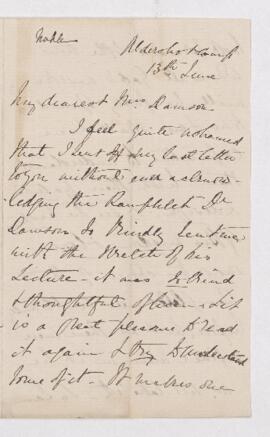 Noble
Aldershot Camp
13th June
My dearest Mrs Dawson
I feel quite ashamed
that I sent off my last letter
to you without ever acknow-
ledging the Pamphlet Dr
Dawson so kindly sent me
with the of his
Lecture - it was so kind
& thoughtful of him & it
is a great pleasure to read
it again & try to understand
some of it - It makes one